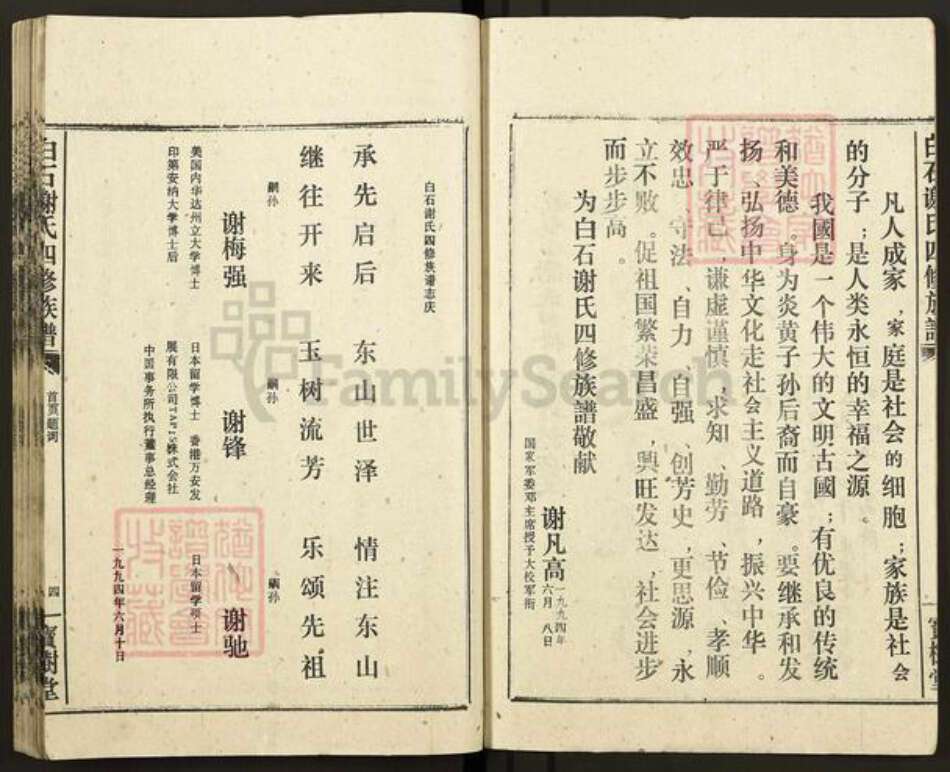 白石谢氏四修族譜
凡人成家，家庭是社会的细胞；家族是社会
的分子；是人类永恒的幸福之源。
我國是一个伟大的文明古國；有优良的传统
和美德。身为炎黄子孙后裔而自豪。要继承和发
扬、弘扬中华文化走社会主义道路，振兴中华。
严于律己，谦虚谨慎，求知、勤劳、节俭、孝顺
效忠、守法、自力、自强、创芳史，更思源，永
立不败。促祖国繁荣昌盛，興旺发达，社会进步
而步步高。
为白石谢氏四修族譜敬献
谢凡高
一九九四年
六月八日
国家军委邓主席授予大校军衔
寳樹堂
白石谢氏四修族谱志庆
承先启后 东山世泽 情注东山
继往开来 玉树流芳 乐颂先祖
嗣孙 嗣孙 嗣孙
谢梅强 谢锋 谢驰
美国内华达州立大学博士 日本留学博士 香港万安发 日本留学博士
印第安纳大学博士后 展有限公司TAPIS株式会社
中国事务所执行董事总经理
一九九四年六月十日
白石谢氏四修族譜
首页题词
四
寳樹堂
FamilySearch